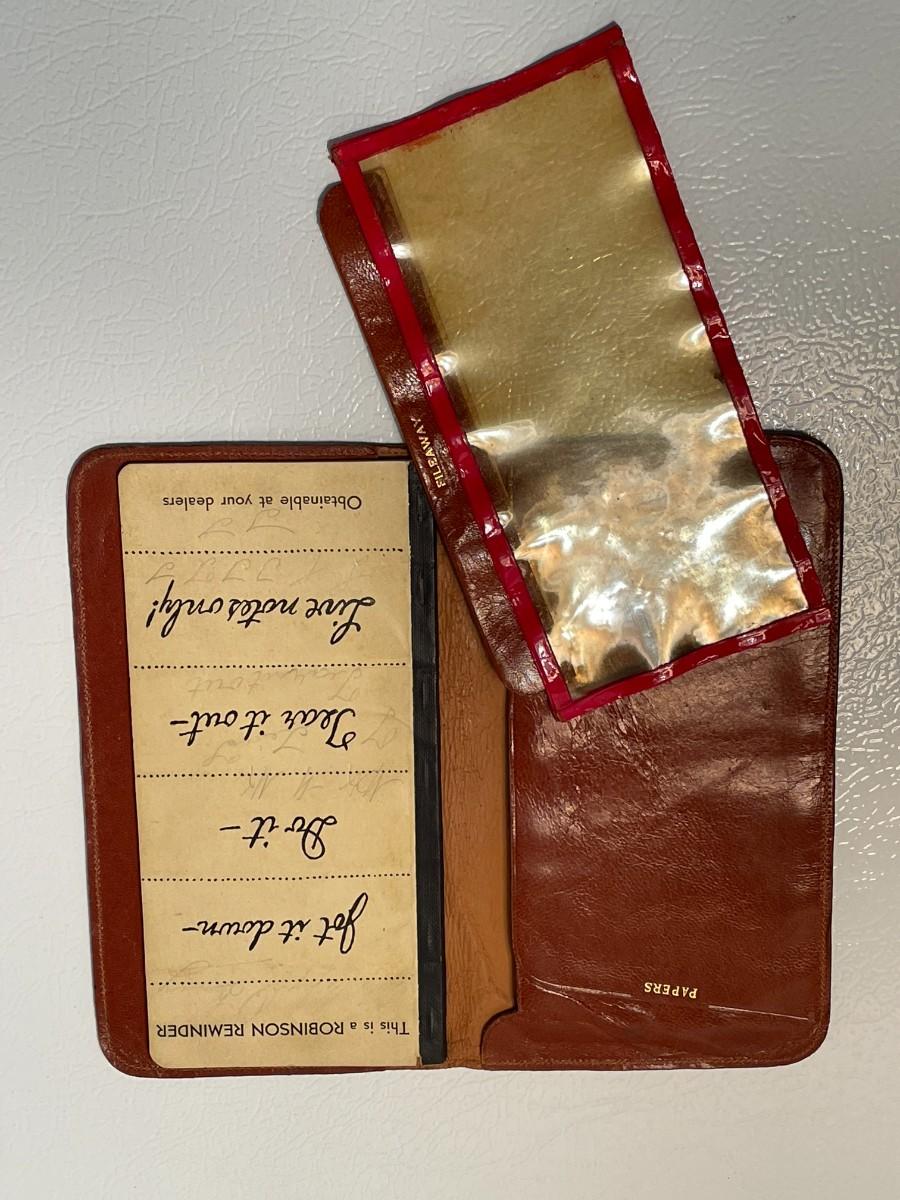 This is a ROBINSON REMINDER
Jot it down-
Do it-
Tear it out-
Live notes only!
Obtainable at your dealers
PAPERS
FILEAWAY